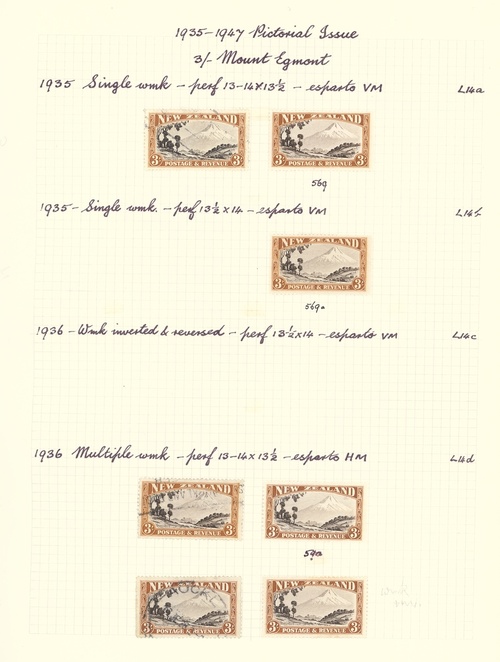 1935-1947 Pictorial Issue
3/- Mount Egmont
1935 Single wmk - perf 13-14x13½ - esparto VM L14a
NEW ZEALAND NEW ZEALAND
3/- POSTAGE & REVENUE 3/- 3/- POSTAGE & REVENUE 3/-
56g
1935 - Single wmk. - perf 13½x14 - esparto VM L14b
NEW ZEALAND
3/- POSTAGE & REVENUE 3/-
56ga
1936 - Wmk inverted & reversed - perf 13½x14 - esparto VM L14c
1936 Multiple wmk - perf 13-14x13½ - esparto HM L14d
NEW ZEALAND NEW ZEALAND
3/- POSTAGE & REVENUE 3/- 3/- POSTAGE & REVENUE 3/-
59a
NEW ZEALAND NEW ZEALAND
3/- POSTAGE & REVENUE 3/- 3/- POSTAGE & REVENUE 3/-